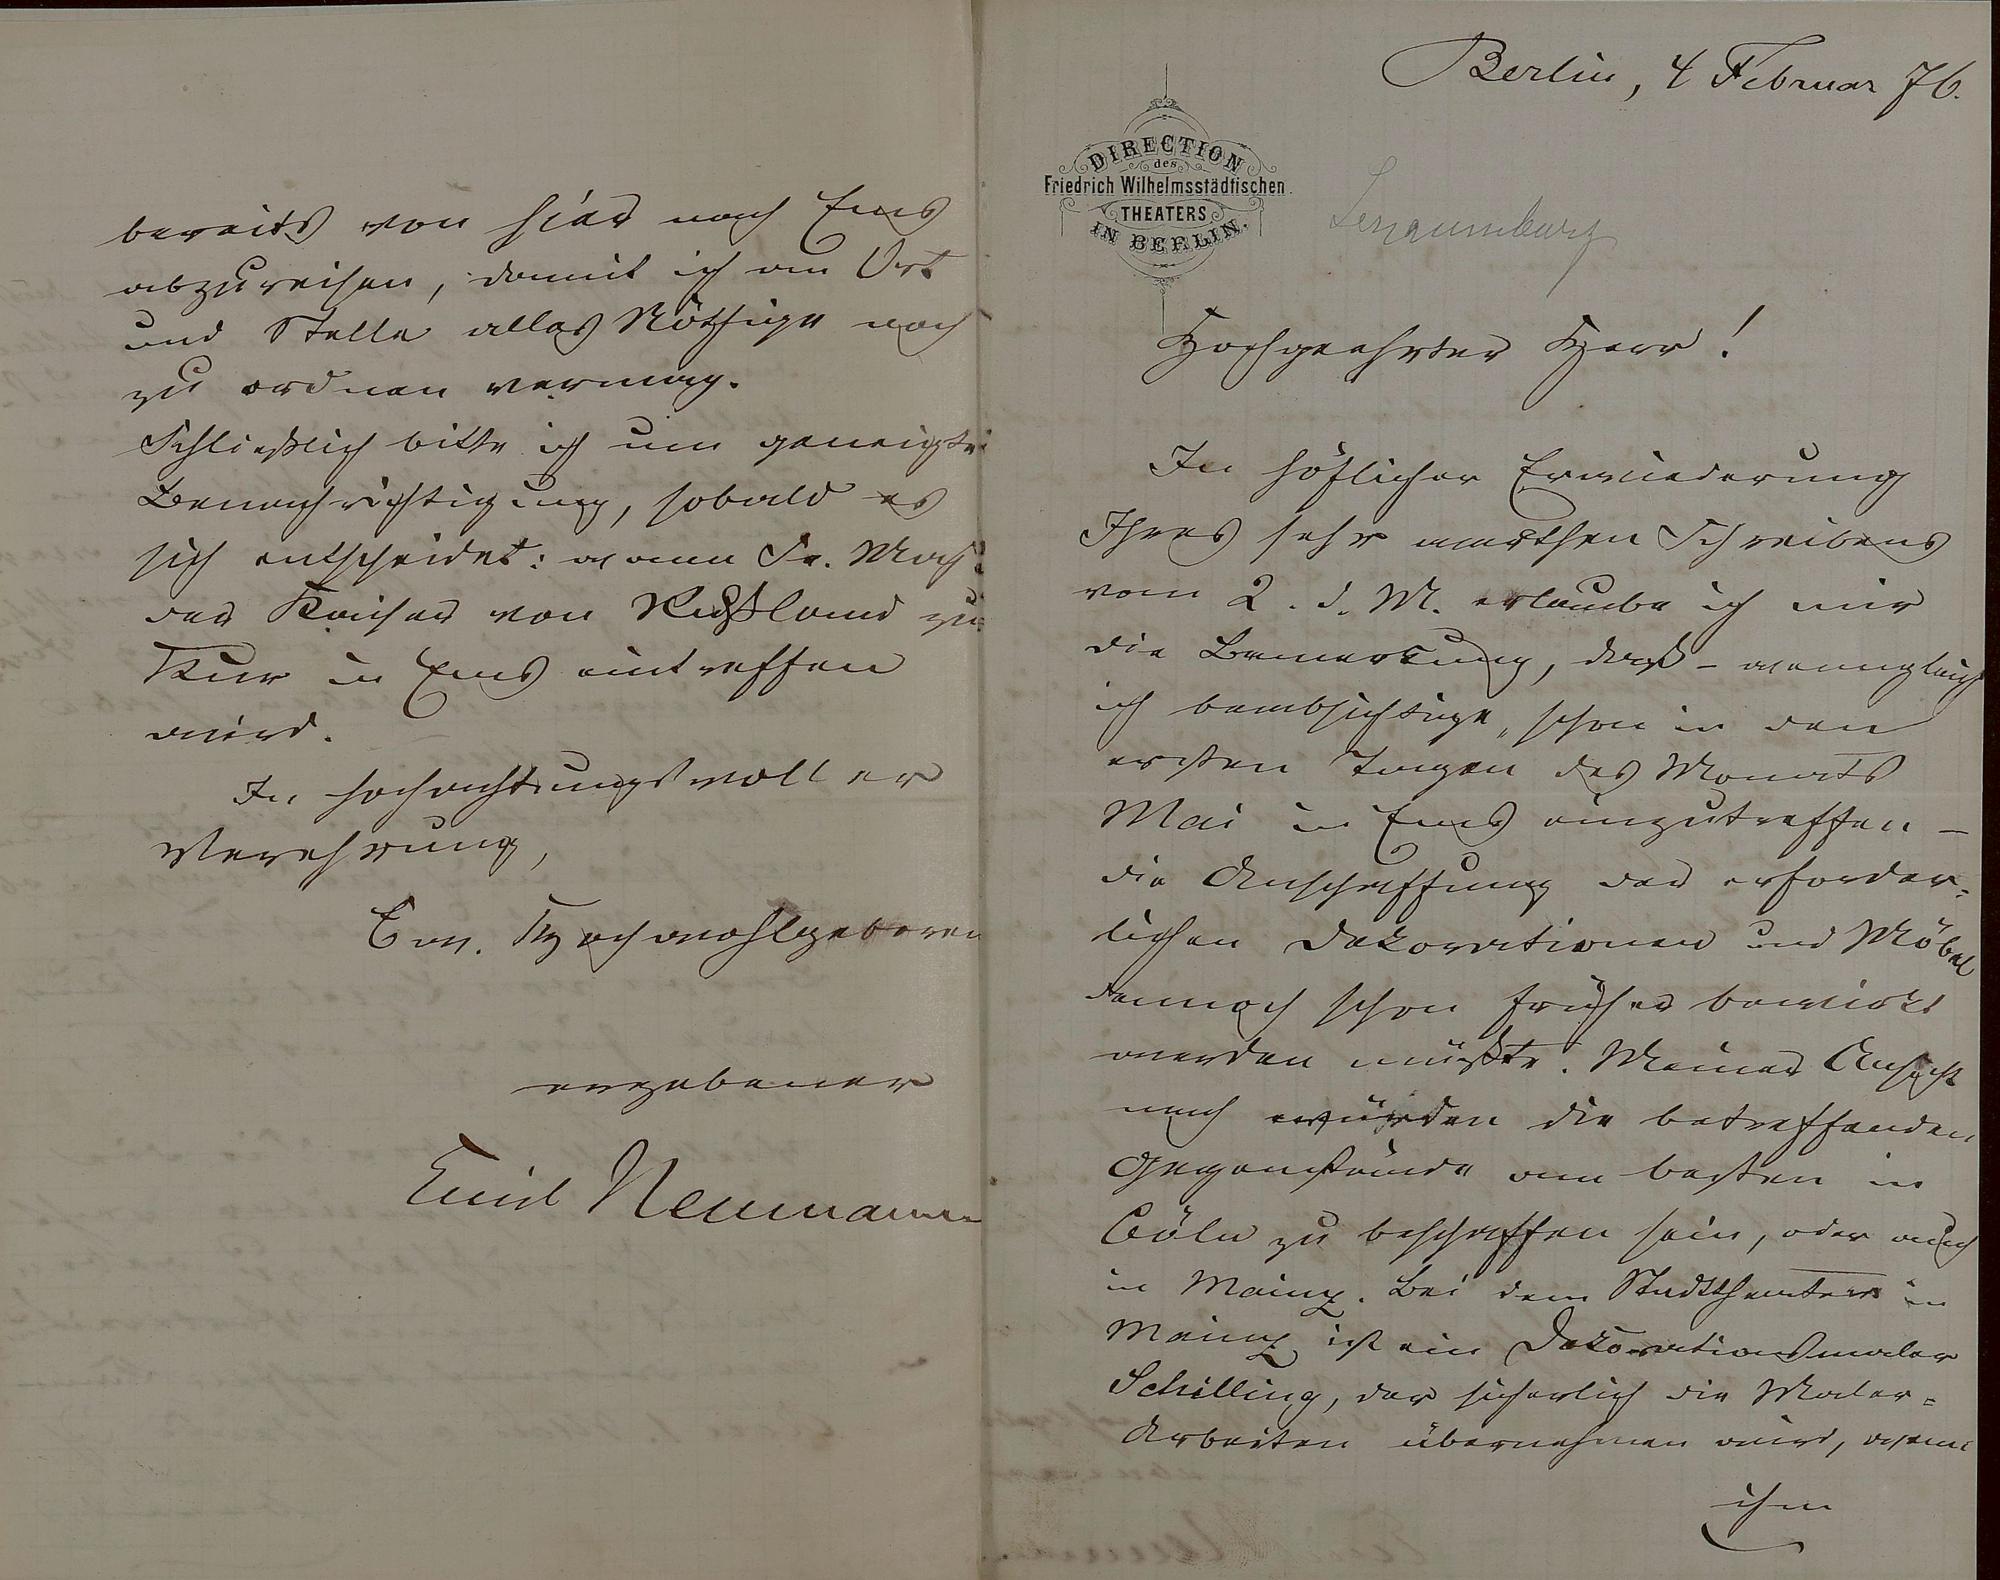 Berlin, 4 Februar 76.
DIRECTION
des
Friedrich Wilhelmsstädtischen
THEATERS
IN BERLIN.
Hochgeehrter Herr!
In höflicher Erwiederung
Ihres sehr werthen Schreibens
vom 2. d. M. erlaube ich mir
die Bemerkung, daß – wenngleich
ich beabsichtige, schon in den
ersten Tagen des Monats
Mai in Ems einzutreffen –
die Anschaffung der erforder-
lichen Dekorationen und Möbel
dennoch schon früher bewirkt
werden müßte. Meiner Ansicht
nach würden die betreffenden
Gegenstände am besten in
Cöln zu beschaffen sein, oder auch
in Mainz. Bei dem Stadttheater in
Mainz ist ein Dekorationsmaler
Schilling, der sicherlich die Maler-
Arbeiten übernehmen wird, wenn
ihm
bereits von hier nach Ems
abzureisen, damit ich an Ort
und Stelle alles Nöthige noch
zu ordnen vermag.
Schließlich bitte ich um geneigte
Benachrichtigung, sobald es
sich entscheidet: wann Sr. Maj.
der Kaiser von Rußland zur
Kur in Ems eintreffen
wird.
In hochachtungsvoller
Verehrung,
Ew. Hochwohlgeboren
ergebener
Emil Neumann